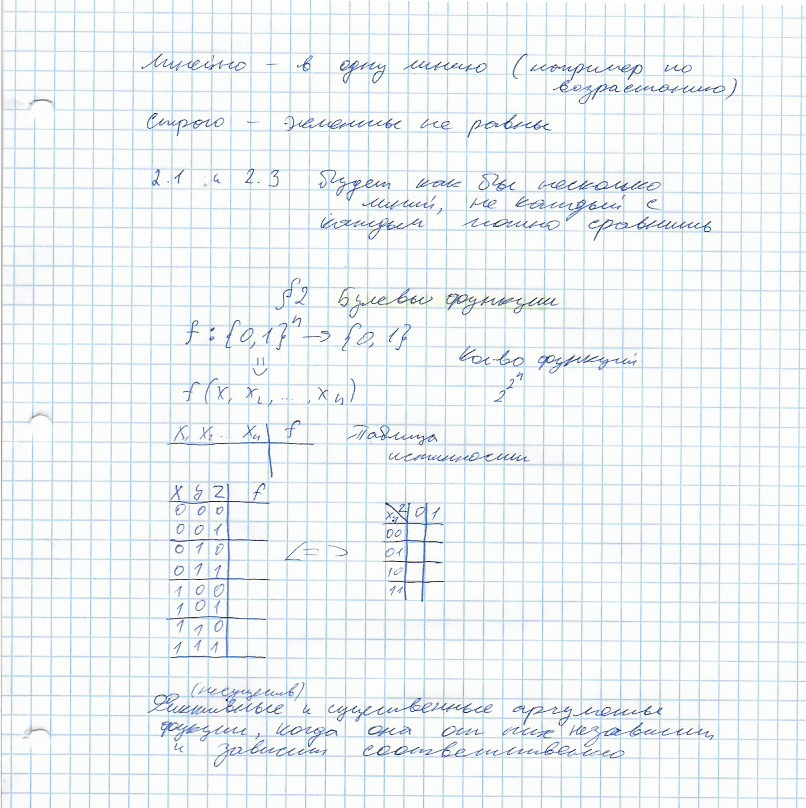 Линейно – в одну линию (например по
возрастанию)
Строго – элементы не равны
2.1 и 2.3 будет как бы несколько
линий, не каждый с
каждым можно сравнить
§2 Булевы функции
f : {0,1}ⁿ → {0,1}
Кол-во функций
2^2^n
f(x₁ x₂, ... , xₙ)
x₁ x₂ ... xₙ | f Таблица
истинности
x y z | f
0 0 0
0 0 1
0 1 0
0 1 1
1 0 0
1 0 1
1 1 0
1 1 1
<=>
xy \ z | 0 | 1
00
01
10
11
(несуществ)
Фиктивные и существенные аргументы
функции, когда она от них независит
и зависит соответственно